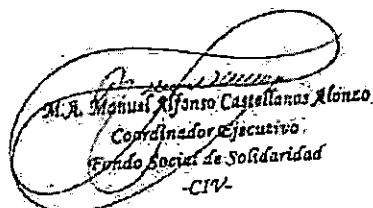 M.A. Manuel Alfonso Castellanos Alonzo
Coordinador Ejecutivo
Fondo Social de Solidaridad
-CIV-